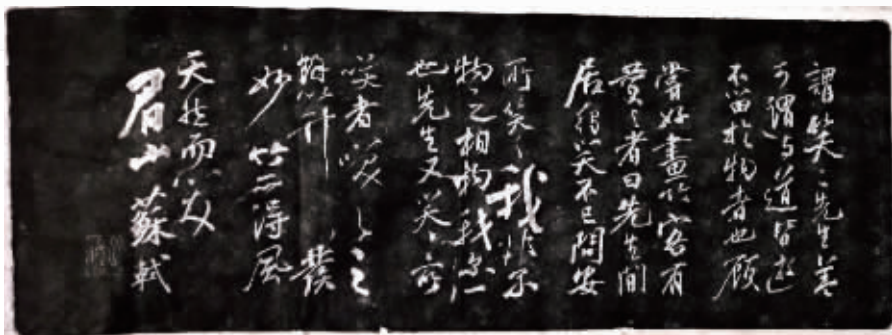 謂笑〻先生蓋
可謂与道皆逝
不留於物者也顧
嘗好畫竹客有
贊之者曰先生閒
居獨笑不已問安
所笑〻我非尔
物之相物我尔一
也先生又笑〻所
笑者笑〻之
餘以竹發
妙竹亦得風
夭然而笑
眉山蘇軾